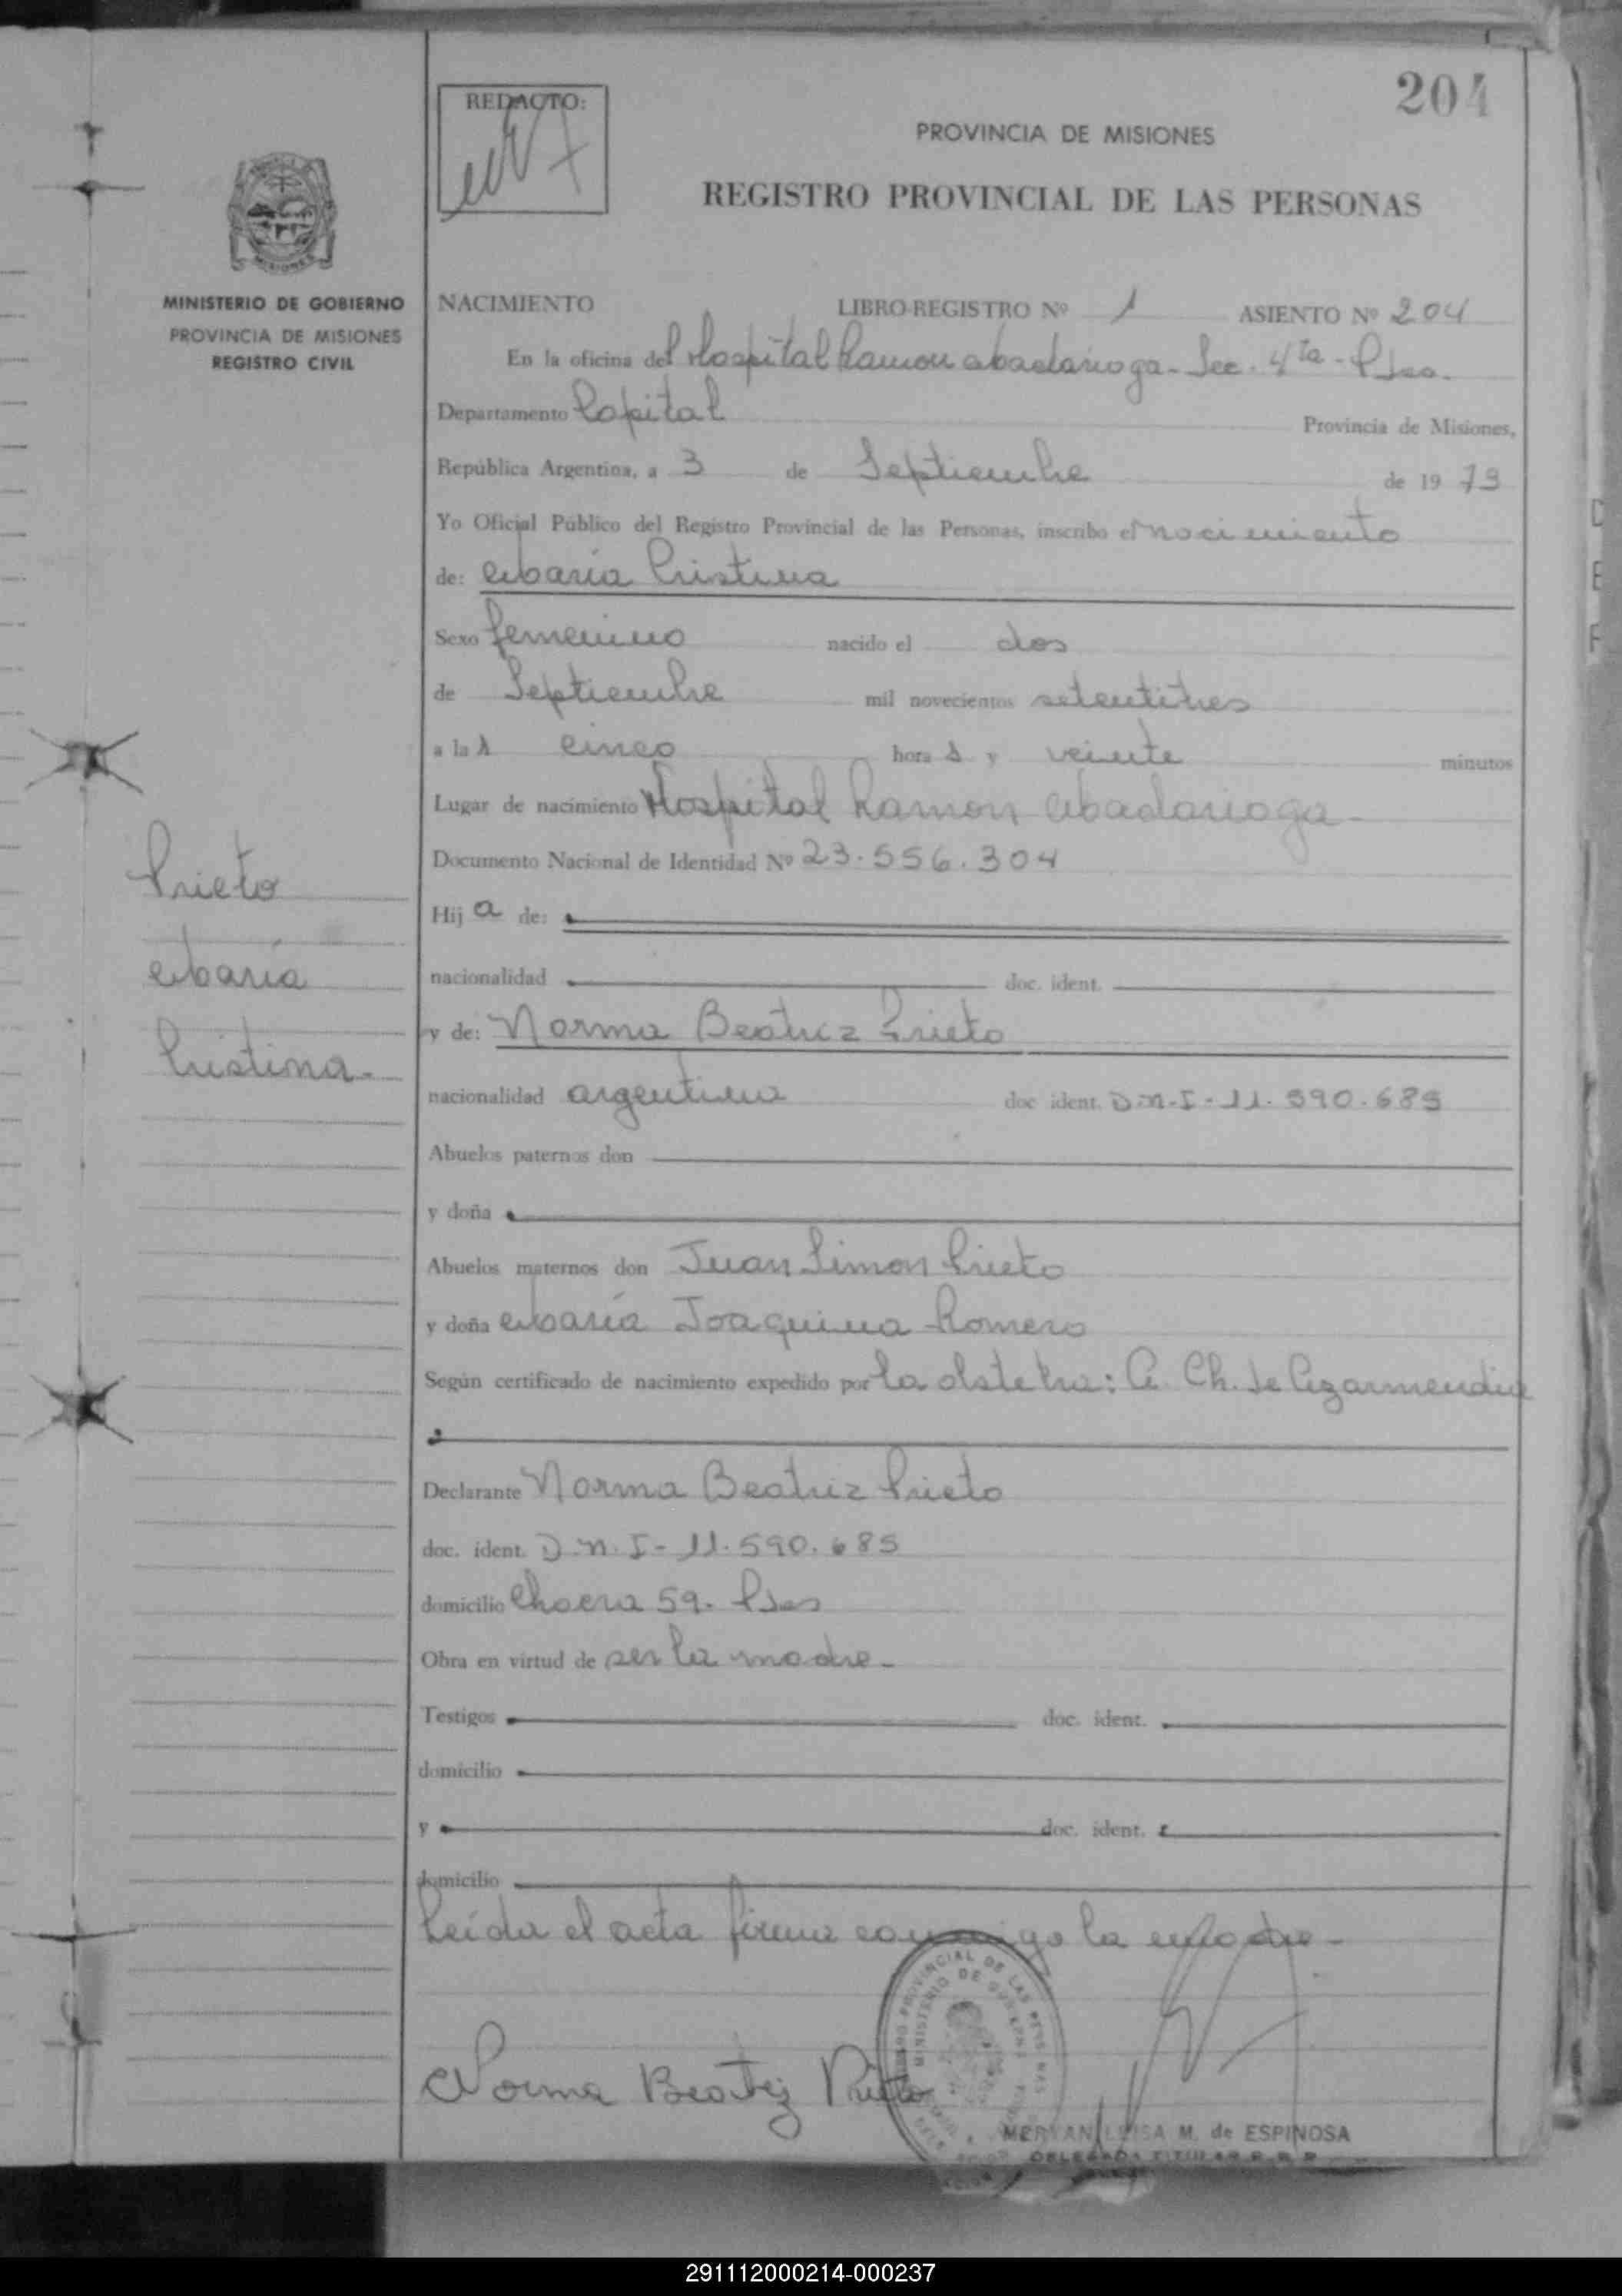 204
REDACTO:
PROVINCIA DE MISIONES
REGISTRO PROVINCIAL DE LAS PERSONAS
MINISTERIO DE GOBIERNO
PROVINCIA DE MISIONES
REGISTRO CIVIL
NACIMIENTO LIBRO-REGISTRO Nº 1 ASIENTO Nº 204
En la oficina del Hospital Ramon Abadarioga - Sec. 4ta - Psas.
Departamento Capital Provincia de Misiones,
República Argentina, a 3 de Septiembre de 1973
Yo Oficial Público del Registro Provincial de las Personas, inscribo el nacimiento
de: María Cristina
Sexo femenino nacido el dos
de Septiembre mil novecientos setentitres
a las cinco horas y veinte minutos
Lugar de nacimiento Hospital Ramon Abadarioga -
Documento Nacional de Identidad Nº 23.556.304
Hija de:
nacionalidad doc. ident.
y de: Norma Beatriz Prieto
nacionalidad argentina doc ident. D.N.I - 11.590.685
Abuelos paternos don
y doña
Abuelos maternos don Juan Simon Prieto
y doña María Joaquina Romero
Según certificado de nacimiento expedido por la obstetra: C. Ch. de Azarmendia
Declarante Norma Beatriz Prieto
doc. ident. D.N.I - 11.590.685
domicilio Chacra 59. Psas
Obra en virtud de ser la madre -
Testigos doc. ident.
domicilio
y doc. ident.
domicilio
Leída el acta firma conmigo la Madre -
Norma Beatriz Prieto
MERYAN LUISA M. de ESPINOSA
DELEGADA TITULAR R. R. P.
Prieto
María
Cristina -
291112000214-000237